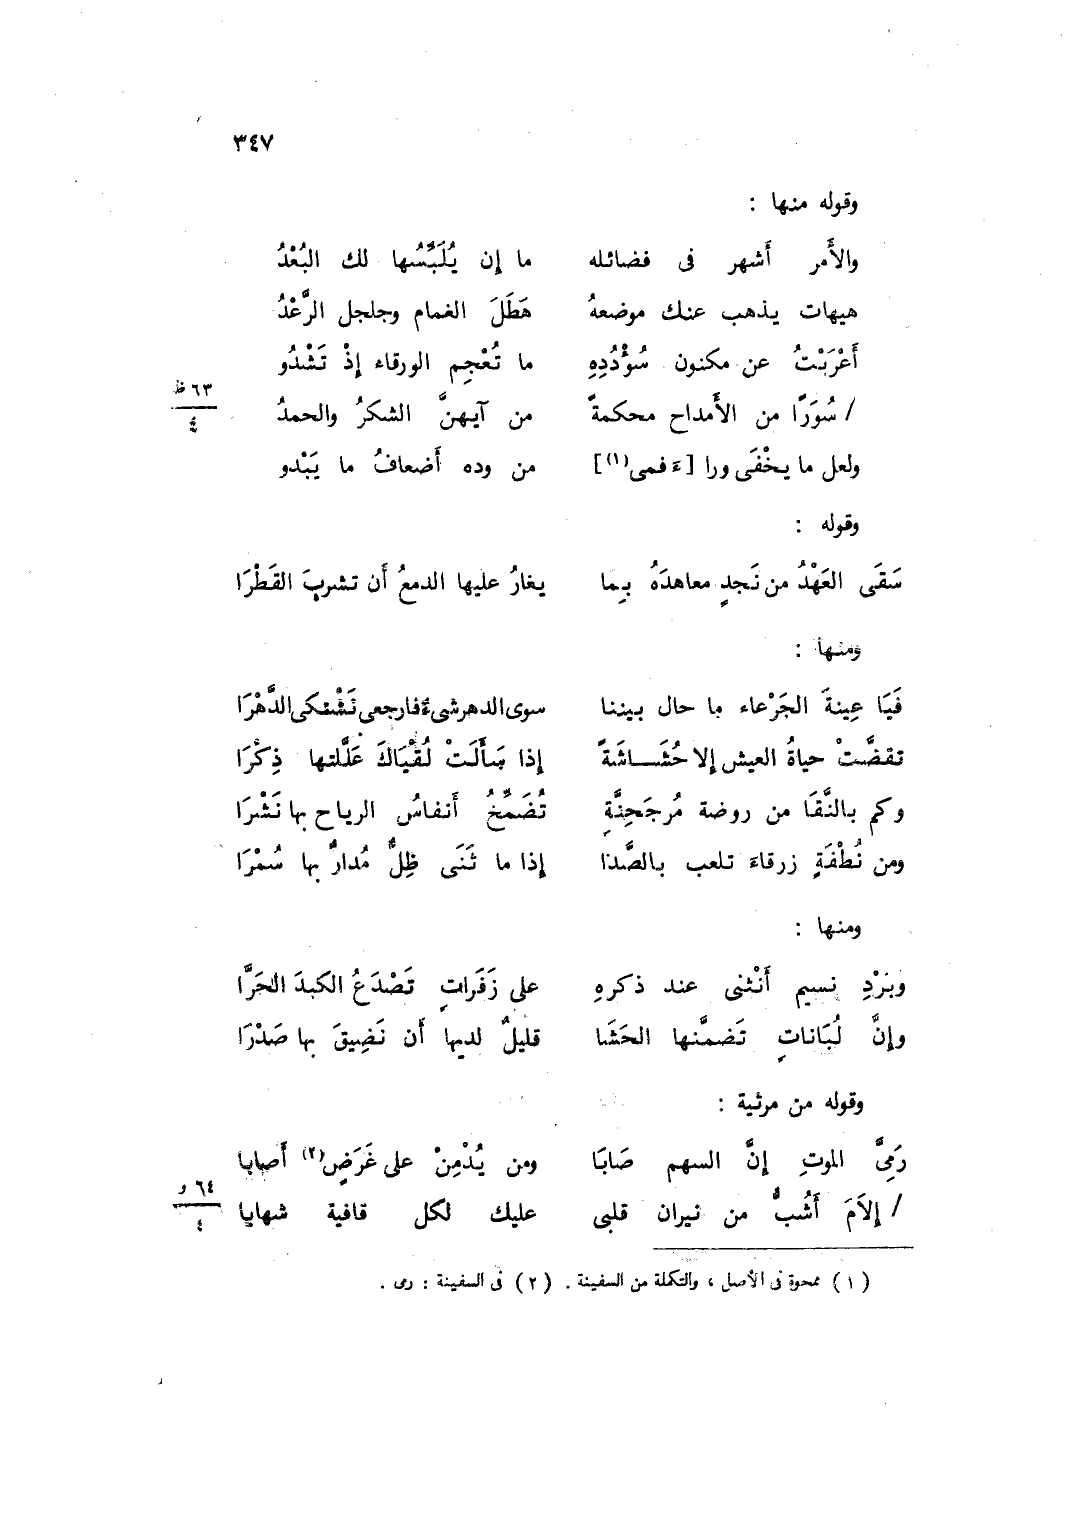 ٣٤٧
وقوله منها :
والأَمر أَشهر فى فضائله ما إن يُلَبِّسُها لك البُعْدُ
هيهات يذهب عنك موضعهُ هَطَلَ الغمام وجلجل الرَّعْدُ
أَعْرَبْتُ عن مكنون سُوْدُدِهِ ما تُعْجِم الورقاء إذْ تَشْدُو
٦٣ ظ
٤
/ سُوَرًا من الأَمداح محكمةً من آيهنَّ الشكرُ والحمدُ
ولعل ما يخْفَى ورا [ءَ فمى(١)] من وده أَضعافُ ما يَبْدو
وقوله :
سَقَى العَهْدُ من نَجدٍ معاهدَهُ بِما يغارُ عليها الدمعُ أَن تشربَ القَطْرَا
ومنها :
فَيَا عِينةَ الجَرْعاء ما حال بيننا سوى الدهر شىءٌ فارجعى نَشْتكى الدَّهْرَا
تقضَّتْ حياةُ العيش إلا حُشَـاشَةً إذا سَأَلَتْ لُقْيَاكَ عَلَّلتها ذِكْرَا
وكم بالنَّقَا من روضة مُرجَحِنَّةٍ تُضَمِّخُ أَنفاسُ الرياح بها نَشْرَا
ومن نُطْفَةٍ زرقاءَ تلعب بالصَّدَا إذا ما ثَنَى ظِلٌّ مُدارٌ بها سُمْرَا
ومنها :
وبَرْدِ نسيم أَنْثنى عند ذكرهِ على زَفَراتٍ تَصْدَعُ الكبدَ الحَرَّا
وإنَّ لُبَاناتٍ تَضمَّنها الحَشَا قليلٌ لديها أَن نَضِيقَ بها صَدْرَا
وقوله من مرثية :
رَمِىَّ الموتِ إنَّ السهم صَابَا ومن يُدْمِنْ على غَرَضٍ(٢) أَصابا
٦٤ و
٤
/ إلاَمَ أَشُبُّ من نيران قلبى عليك لكل قافية شهابا
(١) ممحوة فى الأصل ، والتكملة من السفينة . (٢) فى السفينة : رمى .